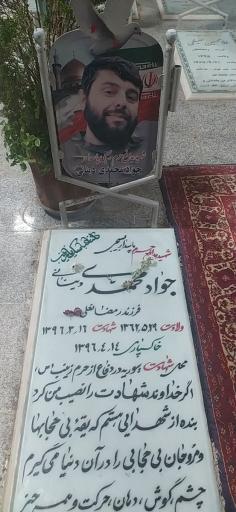 جواد محمدی
شهید مدافع حرم
پاسدار بسیجی
جواد محمدی
فرزند رمضانعلی
ولادت ۱۳۶۲،۵،۲۹ شهادت ۱۳۹۶،۳،۱۶
خاکسپاری ۱۳۹۶،۴،۱۴
محل شهادت: سوریه در دفاع از حرم زینب(س)
اگر خداوند شهادت را نصیب من کرد
بنده از شهدایی هستم که یقهٔ بی حجابها
و مروجان بی حجابی را در آن دنیا می گیرم
چشم، گوش، دهان، حرکت و همه چیز